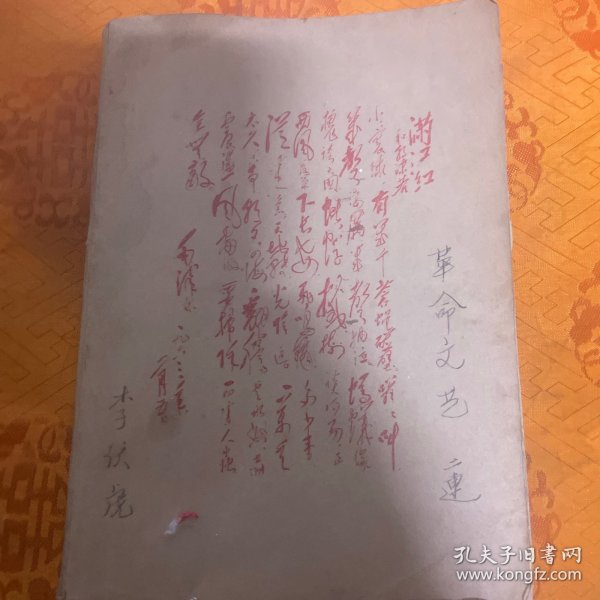 满江红
和郭沫若
小小寰球有几个苍蝇碰壁嗡嗡叫
几声凄厉几声抽泣蚂蚁缘
槐夸大国蚍蜉撼树谈何易正
西风落叶下长安飞鸣镝多少事
从来急天地转光阴迫一万年
太久只争朝夕四海翻腾云水怒五洲
震荡风雷激要扫除一切害人虫
全无敌
毛泽东 一九六三年
革命文艺 二连
李伏
孔夫子旧书网
www.kongfz.com